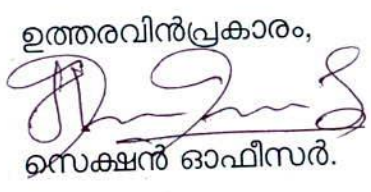 ഉത്തരവിൻപ്രകാരം,
സെക്ഷൻ ഓഫീസർ.